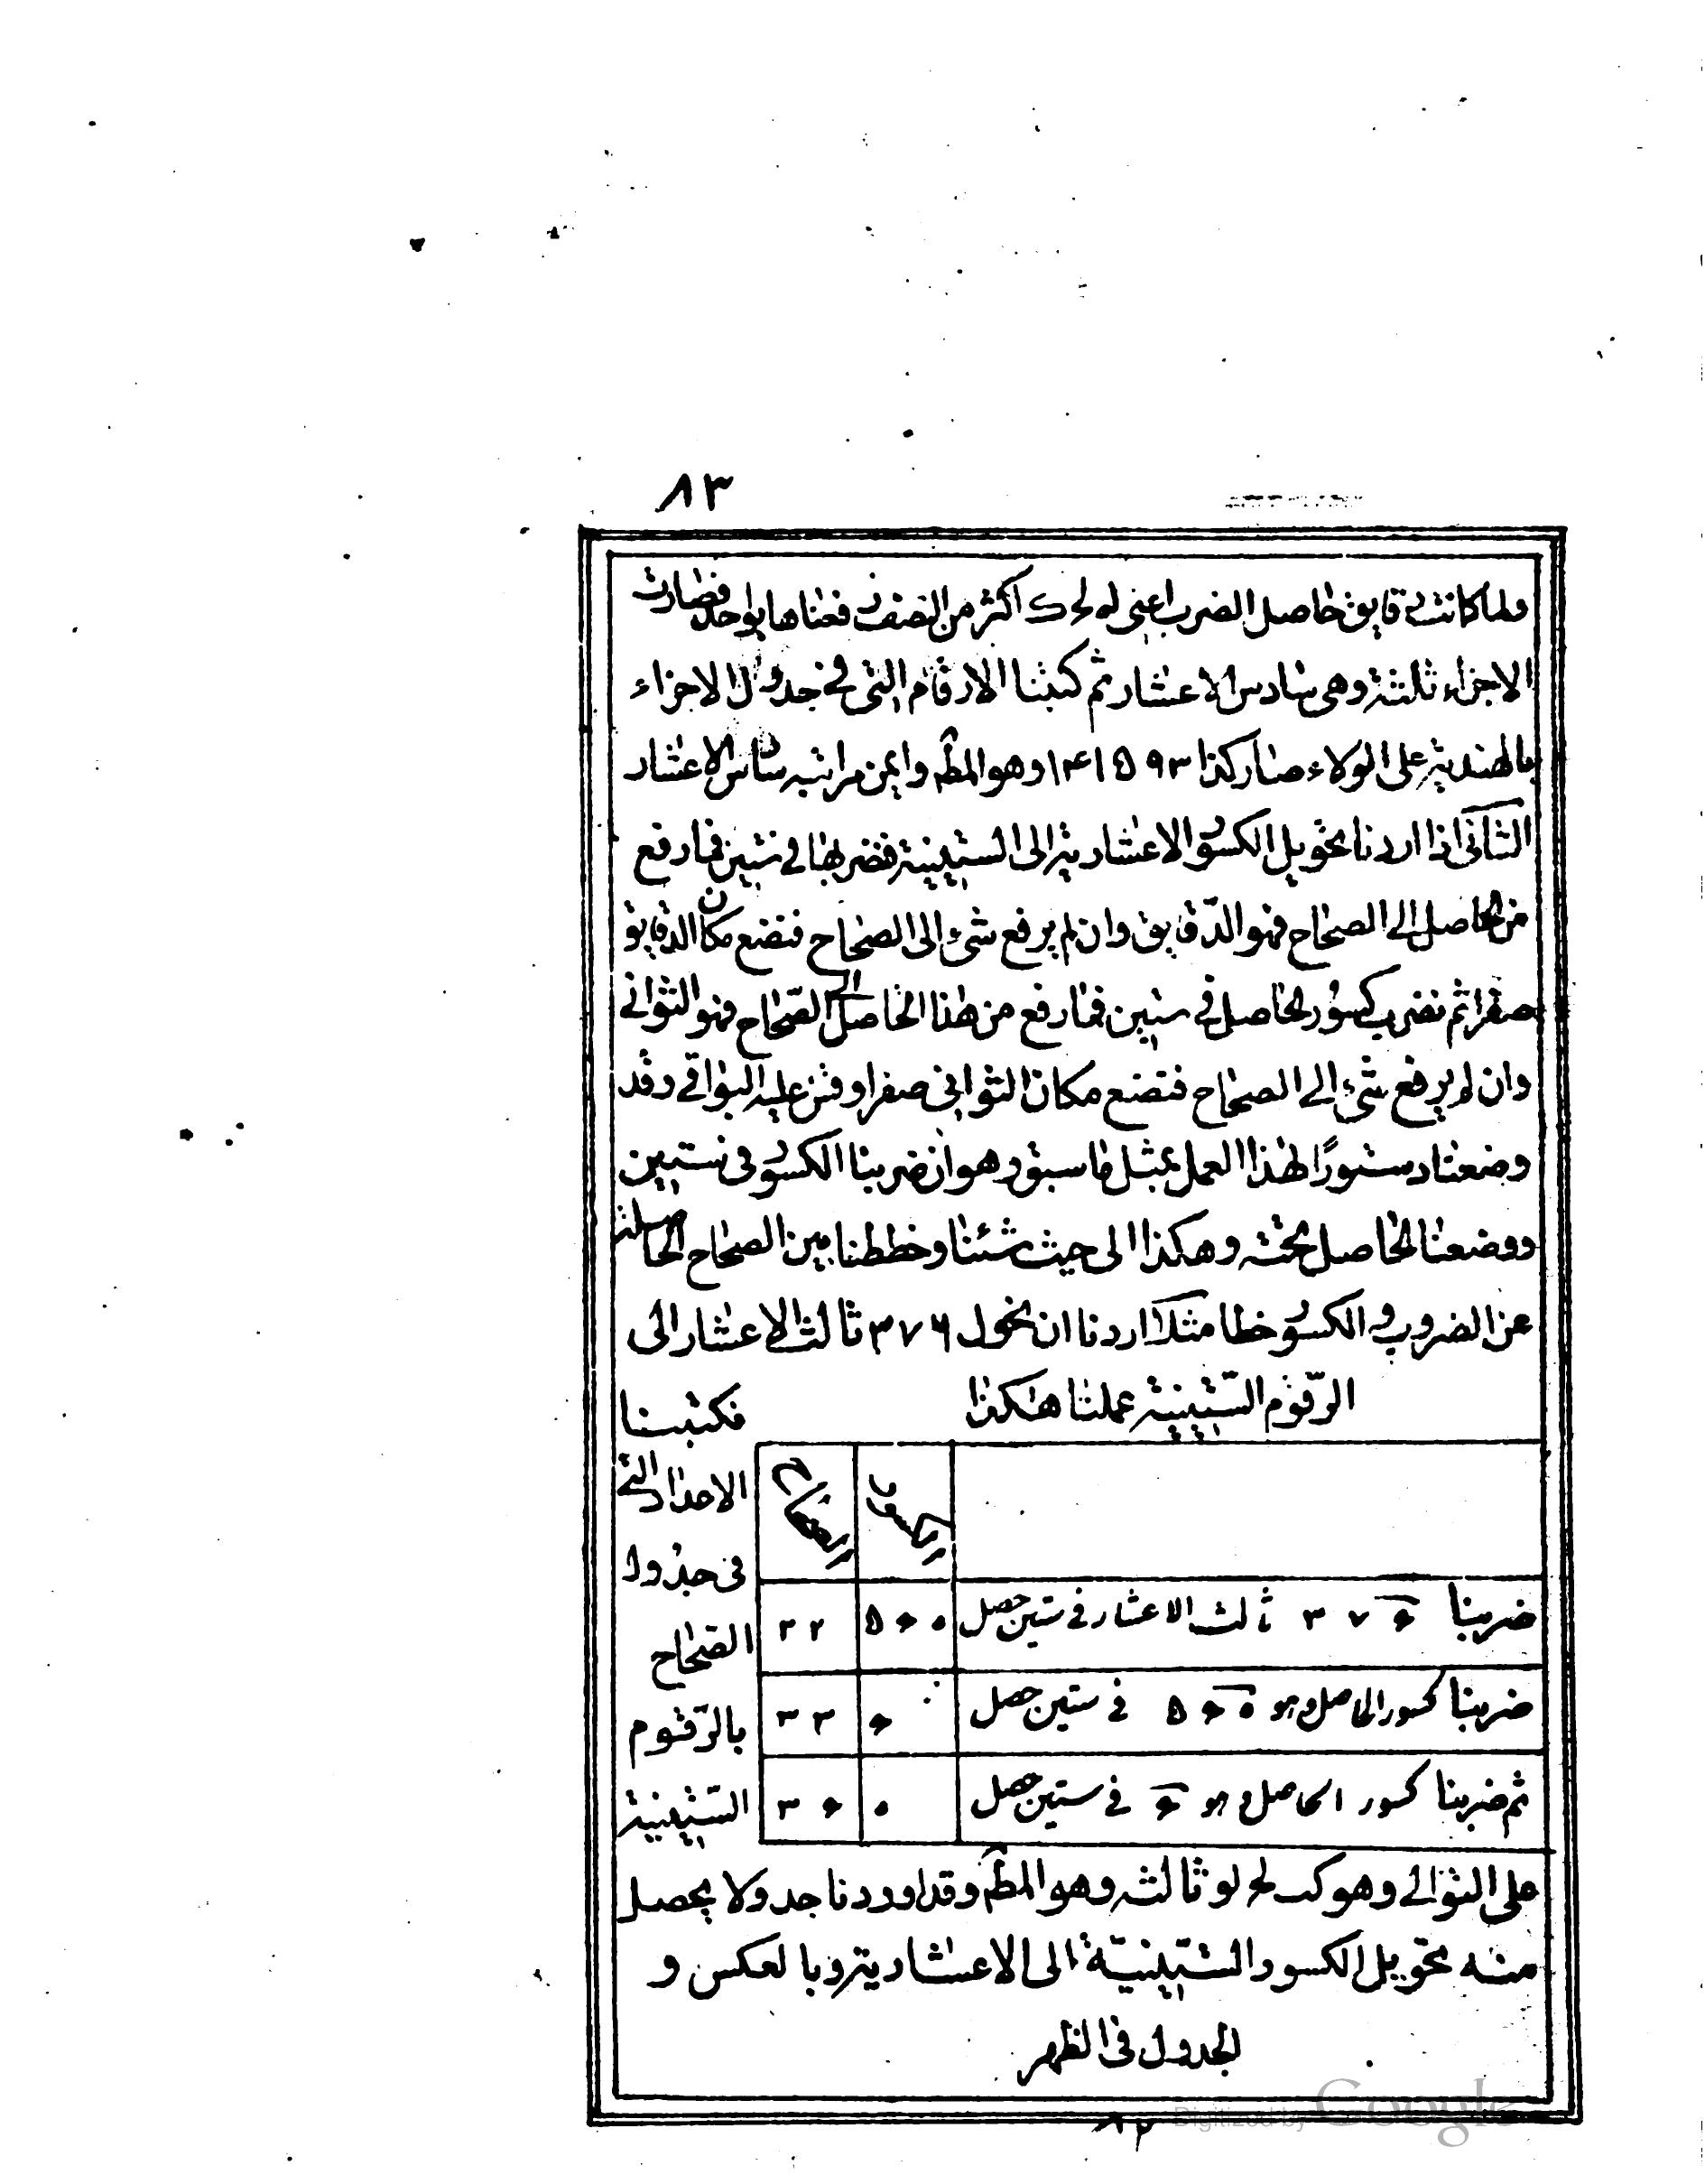 ٨٣
ولما كانت دقايق حاصل الضرب اعنى له لح ك اكثر من النصف رفعناها بواحد فصارت
الاجزاء ثلثة وهى سادس الاعشار ثم كتبنا الارقام التى فى جدول الاجزاء
بالهندية على الولاء صار كذا ١٤١٥٩٣ وهو المط وايمن مراتبه سادس الاعشار
الثانى اذا اردنا تحويل الكسور الاعشارية الى الستينية فنضربها فى ستين فما رفع
من الحاصل الى الصحاح فهو الدقايق وان لم يرفع شىء الى الصحاح فنضع مكان الدقايق
صفرا ثم نضرب كسور الحاصل فى ستين فما رفع من هذا الحاصل الى الصحاح فهو الثوانى
وان لم يرفع شىء الى الصحاح فنضع مكان الثوانى صفرا وقس عليه البواقى وقد
وضعنا دستورًا لهذا العمل بمثل ما سبق وهو ان ضربنا الكسور فى ستين
ووضعنا الحاصل تحته وهكذا الى حيث شئنا وخططنا بين الصحاح الحاصلة
عن الضروب والكسور خطا مثلا اردنا ان نحول ٣٧٦ ثالث الاعشار الى
الرقوم الستينية عملنا هكذا
كسور
صحاح
ضربنا ٣٧٦ ثالث الاعشار فى ستين حصل ٥٦٠ ٢٢
ضربنا كسور الحاصل وهو ٥٦٠ فى ستين حصل ٦ ٣٣
ثم ضربنا كسور الحاصل وهو ٦ فى ستين حصل ٠ ٣٦
فكتبنا
الاعداد التى
فى جدول
الصحاح
بالرقوم
الستينية
على التوالى وهو كب لح لو ثالثه وهو المط وقد اوردنا جدولا يحصل
منه تحويل الكسور الستينية الى الاعشارية وبالعكس و
الجدول فى الظهر
Digitized by Google